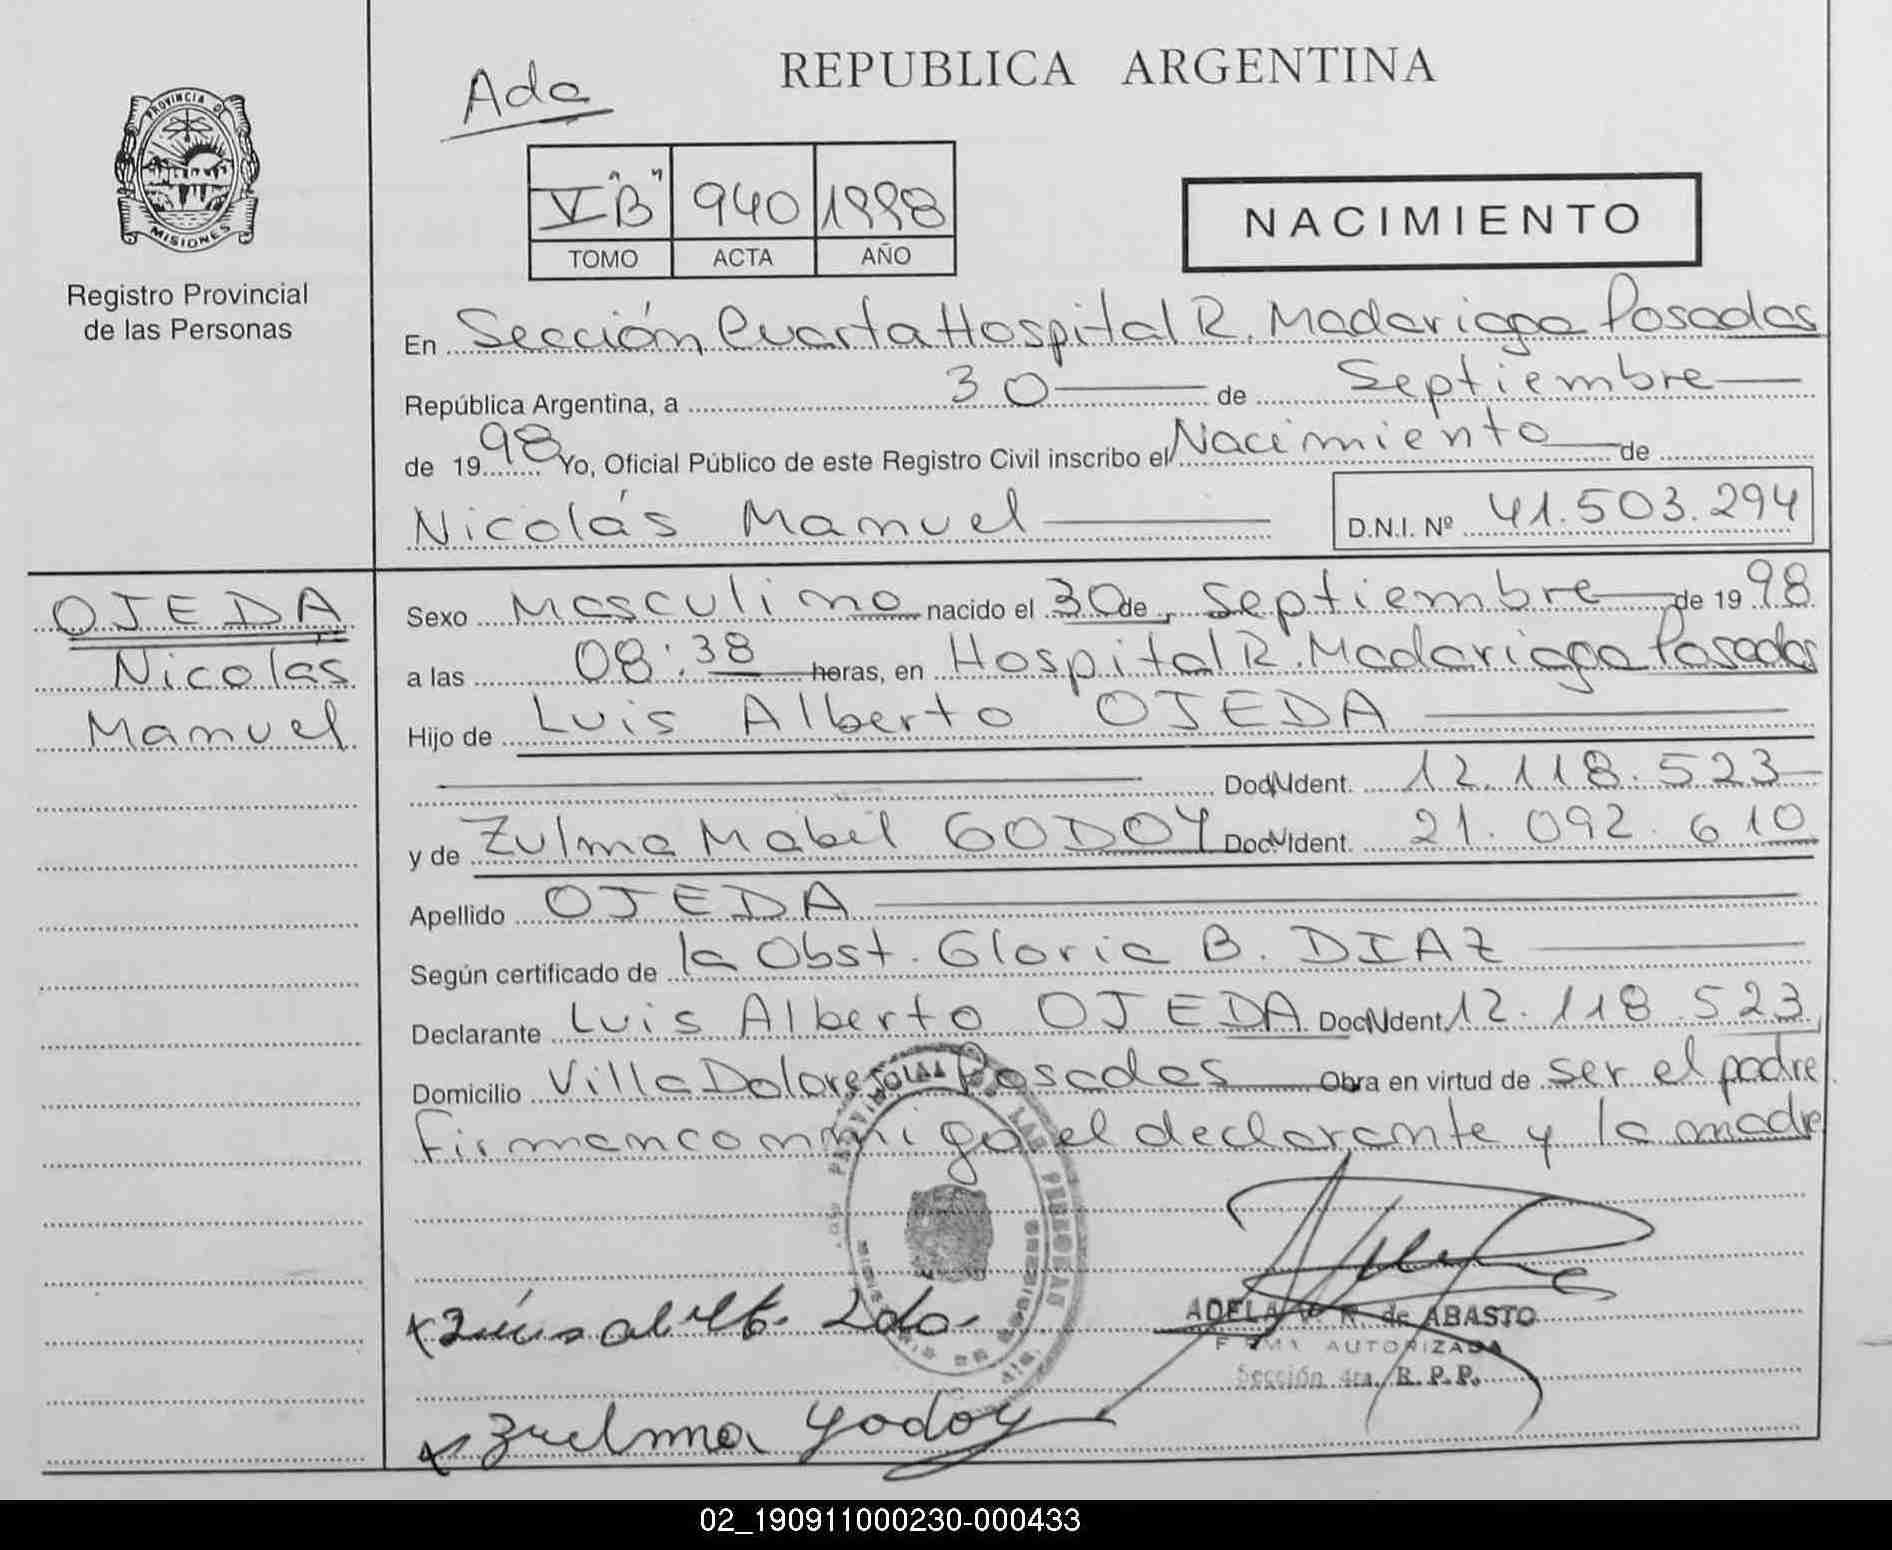 REPUBLICA ARGENTINA
Ada
PROVINCIA DE
MISIONES
Registro Provincial
de las Personas
V "B" 940 1998
TOMO ACTA AÑO
NACIMIENTO
En Sección Cuarta Hospital R. Madariaga Posadas
República Argentina, a 30 de Septiembre
de 1998 Yo, Oficial Público de este Registro Civil inscribo el Nacimiento de
Nicolás Manuel D.N.I. Nº 41.503.294
OJEDA
Nicolás
Manuel
Sexo Masculino nacido el 30 de Septiembre de 1998
a las 08:38 heras, en Hospital R. Madariaga Posadas
Hijo de Luis Alberto OJEDA
Doc. Ident. 12.118.523
y de Zulma Mabil GODOY Doc. Ident. 21.092.610
Apellido OJEDA
Según certificado de la Obst. Gloria B. DIAZ
Declarante Luis Alberto OJEDA Doc. Ident. 12.118.523
Domicilio Villa Dolores Posadas Obra en virtud de ser el padre
Firman conmigo el declarante y la madre
PROVINCIAL DE LAS PERSONAS
ADELA R. de ABASTO
FIRMA AUTORIZADA
Sección 4ta. R.P.P.
Zuelma Godoy
02_190911000230-000433